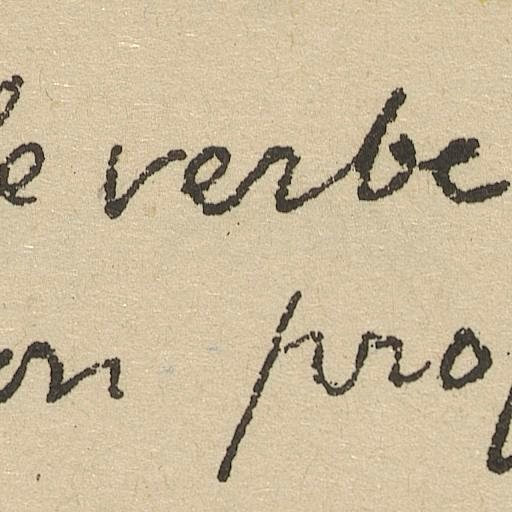 le verbe
on prop